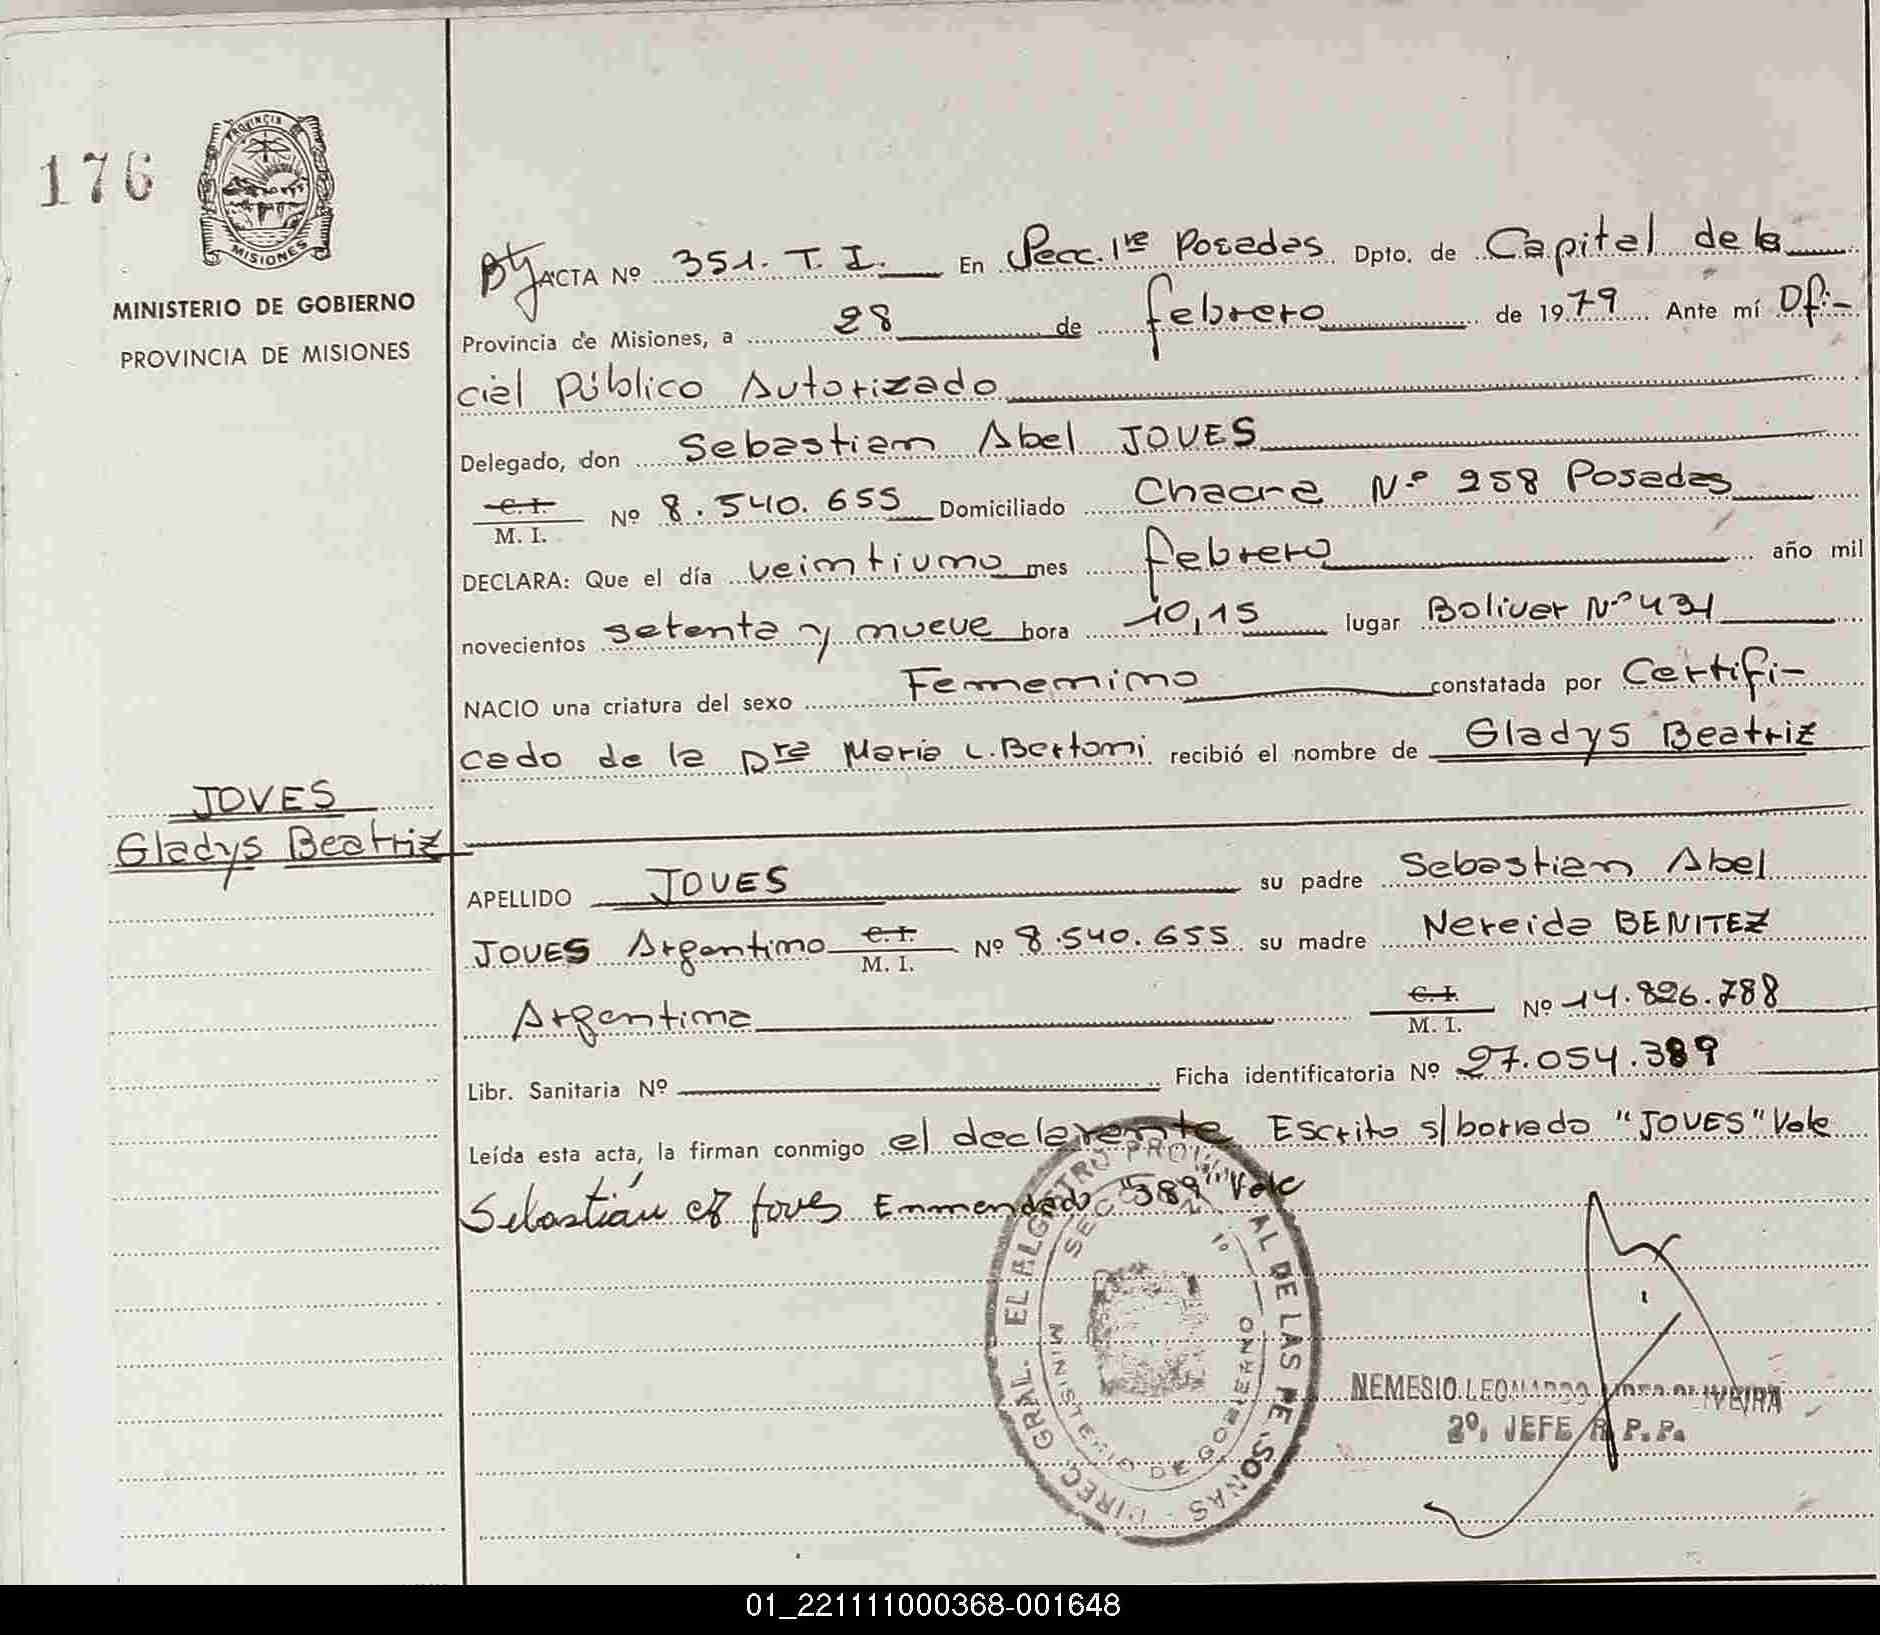 176
PROVINCIA DE
MISIONES
MINISTERIO DE GOBIERNO
PROVINCIA DE MISIONES
ACTA Nº 351. T. I. En Secc. 1ra Posadas Dpto. de Capital de la
Provincia de Misiones, a 28 de febrero de 1979 Ante mí Ofi-
cial Público Autorizado
Delegado, don Sebastian Abel JOVES
C. I. M. I. Nº 8.540.655 Domiciliado Chacra Nº 258 Posadas
DECLARA: Que el día veintiuno mes febrero año mil
novecientos setenta y nueve hora 10,15 lugar Bolivar Nº 431
NACIO una criatura del sexo Femenino constatada por Certifi-
cado de la Dra Maria L. Bertoni recibió el nombre de Gladys Beatriz
JOVES
Gladys Beatriz
APELLIDO JOVES su padre Sebastian Abel
JOVES Argentino C. I. M. I. Nº 8.540.655 su madre Nereida BENITEZ
Argentina C. I. M. I. Nº 14.826.788
Libr. Sanitaria Nº Ficha identificatoria Nº 27.054.389
Leída esta acta, la firman conmigo el declarante Escrito s/borrado "JOVES" Vale
Sebastián Joves Enmendado "389" Vale
SECC 1º
MINISTERIO DE GOBIERNO
AL DE LAS PERSONAS
DIREC GRAL.
NEMESIO LEONARDO OLIVEIRA
2º. JEFE R. P. P.
01_221111000368-001648